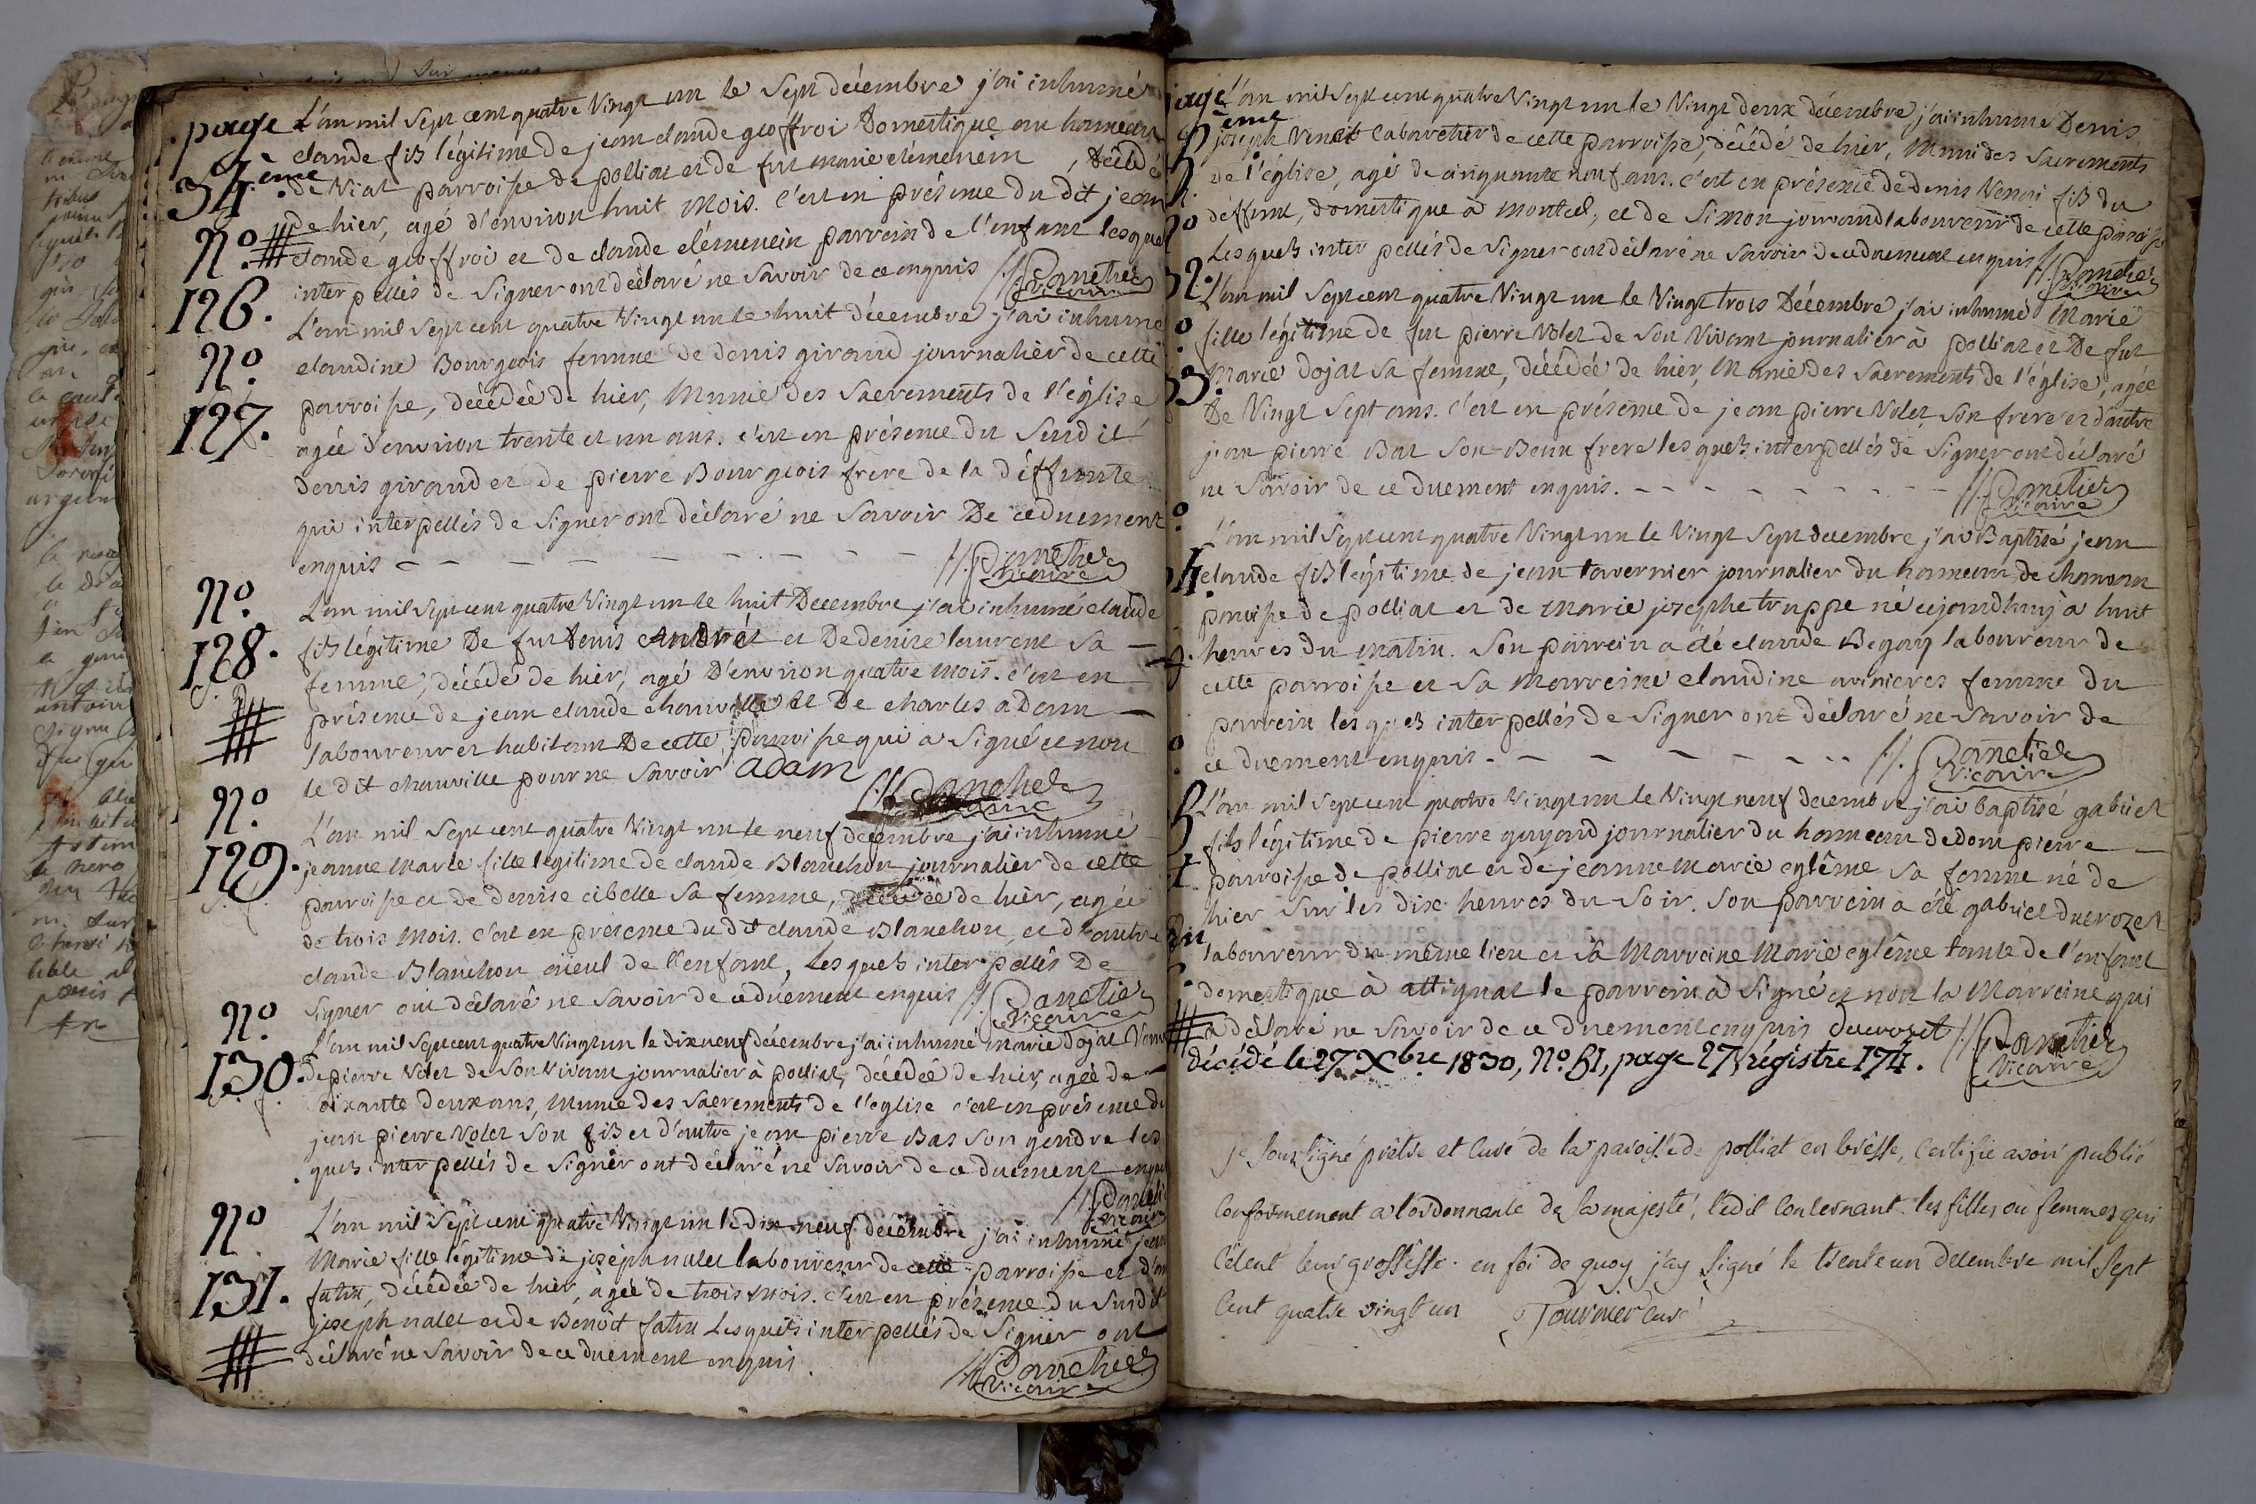 page
34.ème
L'an mil sept cent quatre vingt un le sept décembre j'ai inhumé
claude fils légitime de jean claude geoffroi Domestique au hameau
de Viat parroisse de polliat et de fut marie clémencin, décédé
de hier, agé d'environ huit mois. c'est en présence du dit jean
claude geoffroi et de claude clémencin parrein de l'enfant lesquels
inter pellés de signer ont déclaré ne savoir de ce enquis
Vicaire
N.o
126.
L'an mil sept cent quatre vingt un le huit décembre j'ai inhumé
claudine Bourgeois femme de denis giraud journalier de cette
parroisse, décédée de hier, Munie des sacrements de l'église
agée d'environ trente et un ans. c'est en présence du susdit
denis giraud et de pierre Bourgeois frere de la déffunte
qui interpellés de signer ont déclaré ne savoir De ce duement
enquis
Vicaire
N.o
127.
L'an mil sept cent quatre vingt un le huit Decembre j'ai inhumé claude
fils légitime De fut denis et De denise laurent sa
femme, décédé de hier, agé D'environ quatre mois. c'est en
présence de jean claude chauville et De charles adam
laboureur et habitant De cette parroisse qui a signé et non
le dit chauville pour ne savoir adam
Vicaire
N.o
128.
L'an mil sept cent quatre vingt un le neuf décembre j'ai inhumé
jeanne Marie fille légitime de claude Blanchon journalier de cette
parroisse et de denise cibelle sa femme, décédée de hier, agée
de trois mois. c'est en présence du dit claude Blanchon, et d'autre
claude Blanchon aïeul de l'enfant, lesquels inter pellés De
signer ont déclaré ne savoir de ce duement enquis
Vicaire
N.o
129.
L'an mil sept cent quatre vingt un le dix neuf décembre j'ai inhumé marie dojat
de pierre Volet de son vivant journalier à polliat, décédée de hier, agée de
soixante deux ans, munie des sacrements de l'église c'est en présence de
jean pierre Volet son fils et d'autre jean pierre Bas son gendre les
quels inter pellés de signer ont déclaré ne savoir de ce duement enquis
N.o
130.
L'an mil sept cent quatre vingt un le dix neuf décembre j'ai inhumé
Marie fille légitime de joséph nalet laboureur de cette parroisse et
décédée de hier, agée de trois mois. c'est en présence du susdit
joseph nalet et de Benoit lesquels inter pellés de signer ont
déclaré ne savoir de ce duement enquis.
Vicaire
N.o
131.
page
ème
L'an mil sept cent quatre vingt un le vingt deux décembre j'ai inhumé Denis
joseph cabaretier de cette parroisse, décédé de hier, Muni des sacrements
de l'église, agé de cinquante neuf ans. c'est en présence de denis fils du
déffunt, domestique à montcel, et de simon laboureur de cette paroisse
lesquels inter pellés de signer ont déclaré ne savoir de ce duement enquis
Vicaire
L'an mil sept cent quatre vingt un le vingt trois Décembre j'ai inhumé Marie
fille légitime de fut pierre Volet de son vivant journalier à polliat et De fut
Marie dojat sa femme, décédée de hier, Munie des sacrements de l'église, agée
De vingt sept ans. c'est en présence de jean pierre Volet son frere et d'autre
jean pierre Bas son Beau frere lesquels interpellés de signer ont déclaré
ne savoir de ce duement enquis.
Vicaire
L'an mil sept cent quatre vingt un le vingt sept decembre j'ai Baptisé jean
claude fils légitime de jean tavernier journalier du hameau de
paroisse de polliat et de Marie josephe truppe né ce jourdhuy à huit
heures du matin. son parrein a été claude Begouy laboureur de
cette parroisse et sa Marreine claudine femme du
parrein lesquels inter pellés de signer ont déclaré ne savoir de
ce duement enquis
Vicaire
L'an mil sept cent quatre vingt un le vingt neuf décembre j'ai baptisé gabriel
fils légitime de pierre guyand journalier du hameau de dom pierre
parroisse de polliat et de jeanne Marie eglême sa femme né de
hier sur les dix heures du soir. son parrein a été gabriel ducrozet
laboureur du même lieu et sa Marreine Marie eglême tante de l'enfant
domestique à attignat le parrein a signé et non la Marreine qui
a déclaré ne savoir de ce duement enquis ducrozet
Vicaire
décédé le 27 Xbre 1830, N.o 51, page 27 régistre 174.
je soussigné prêtre et curé de la paroisse de polliat en bresse, certifie avoir publié
conformement a l'ordonnance de sa majesté, l'édit concernant les filles ou femmes qui
cêlent leur grossesse. en foi de quoy j'ay signé le trente un decembre mil sept
cent quatre vingt un Tournier curé